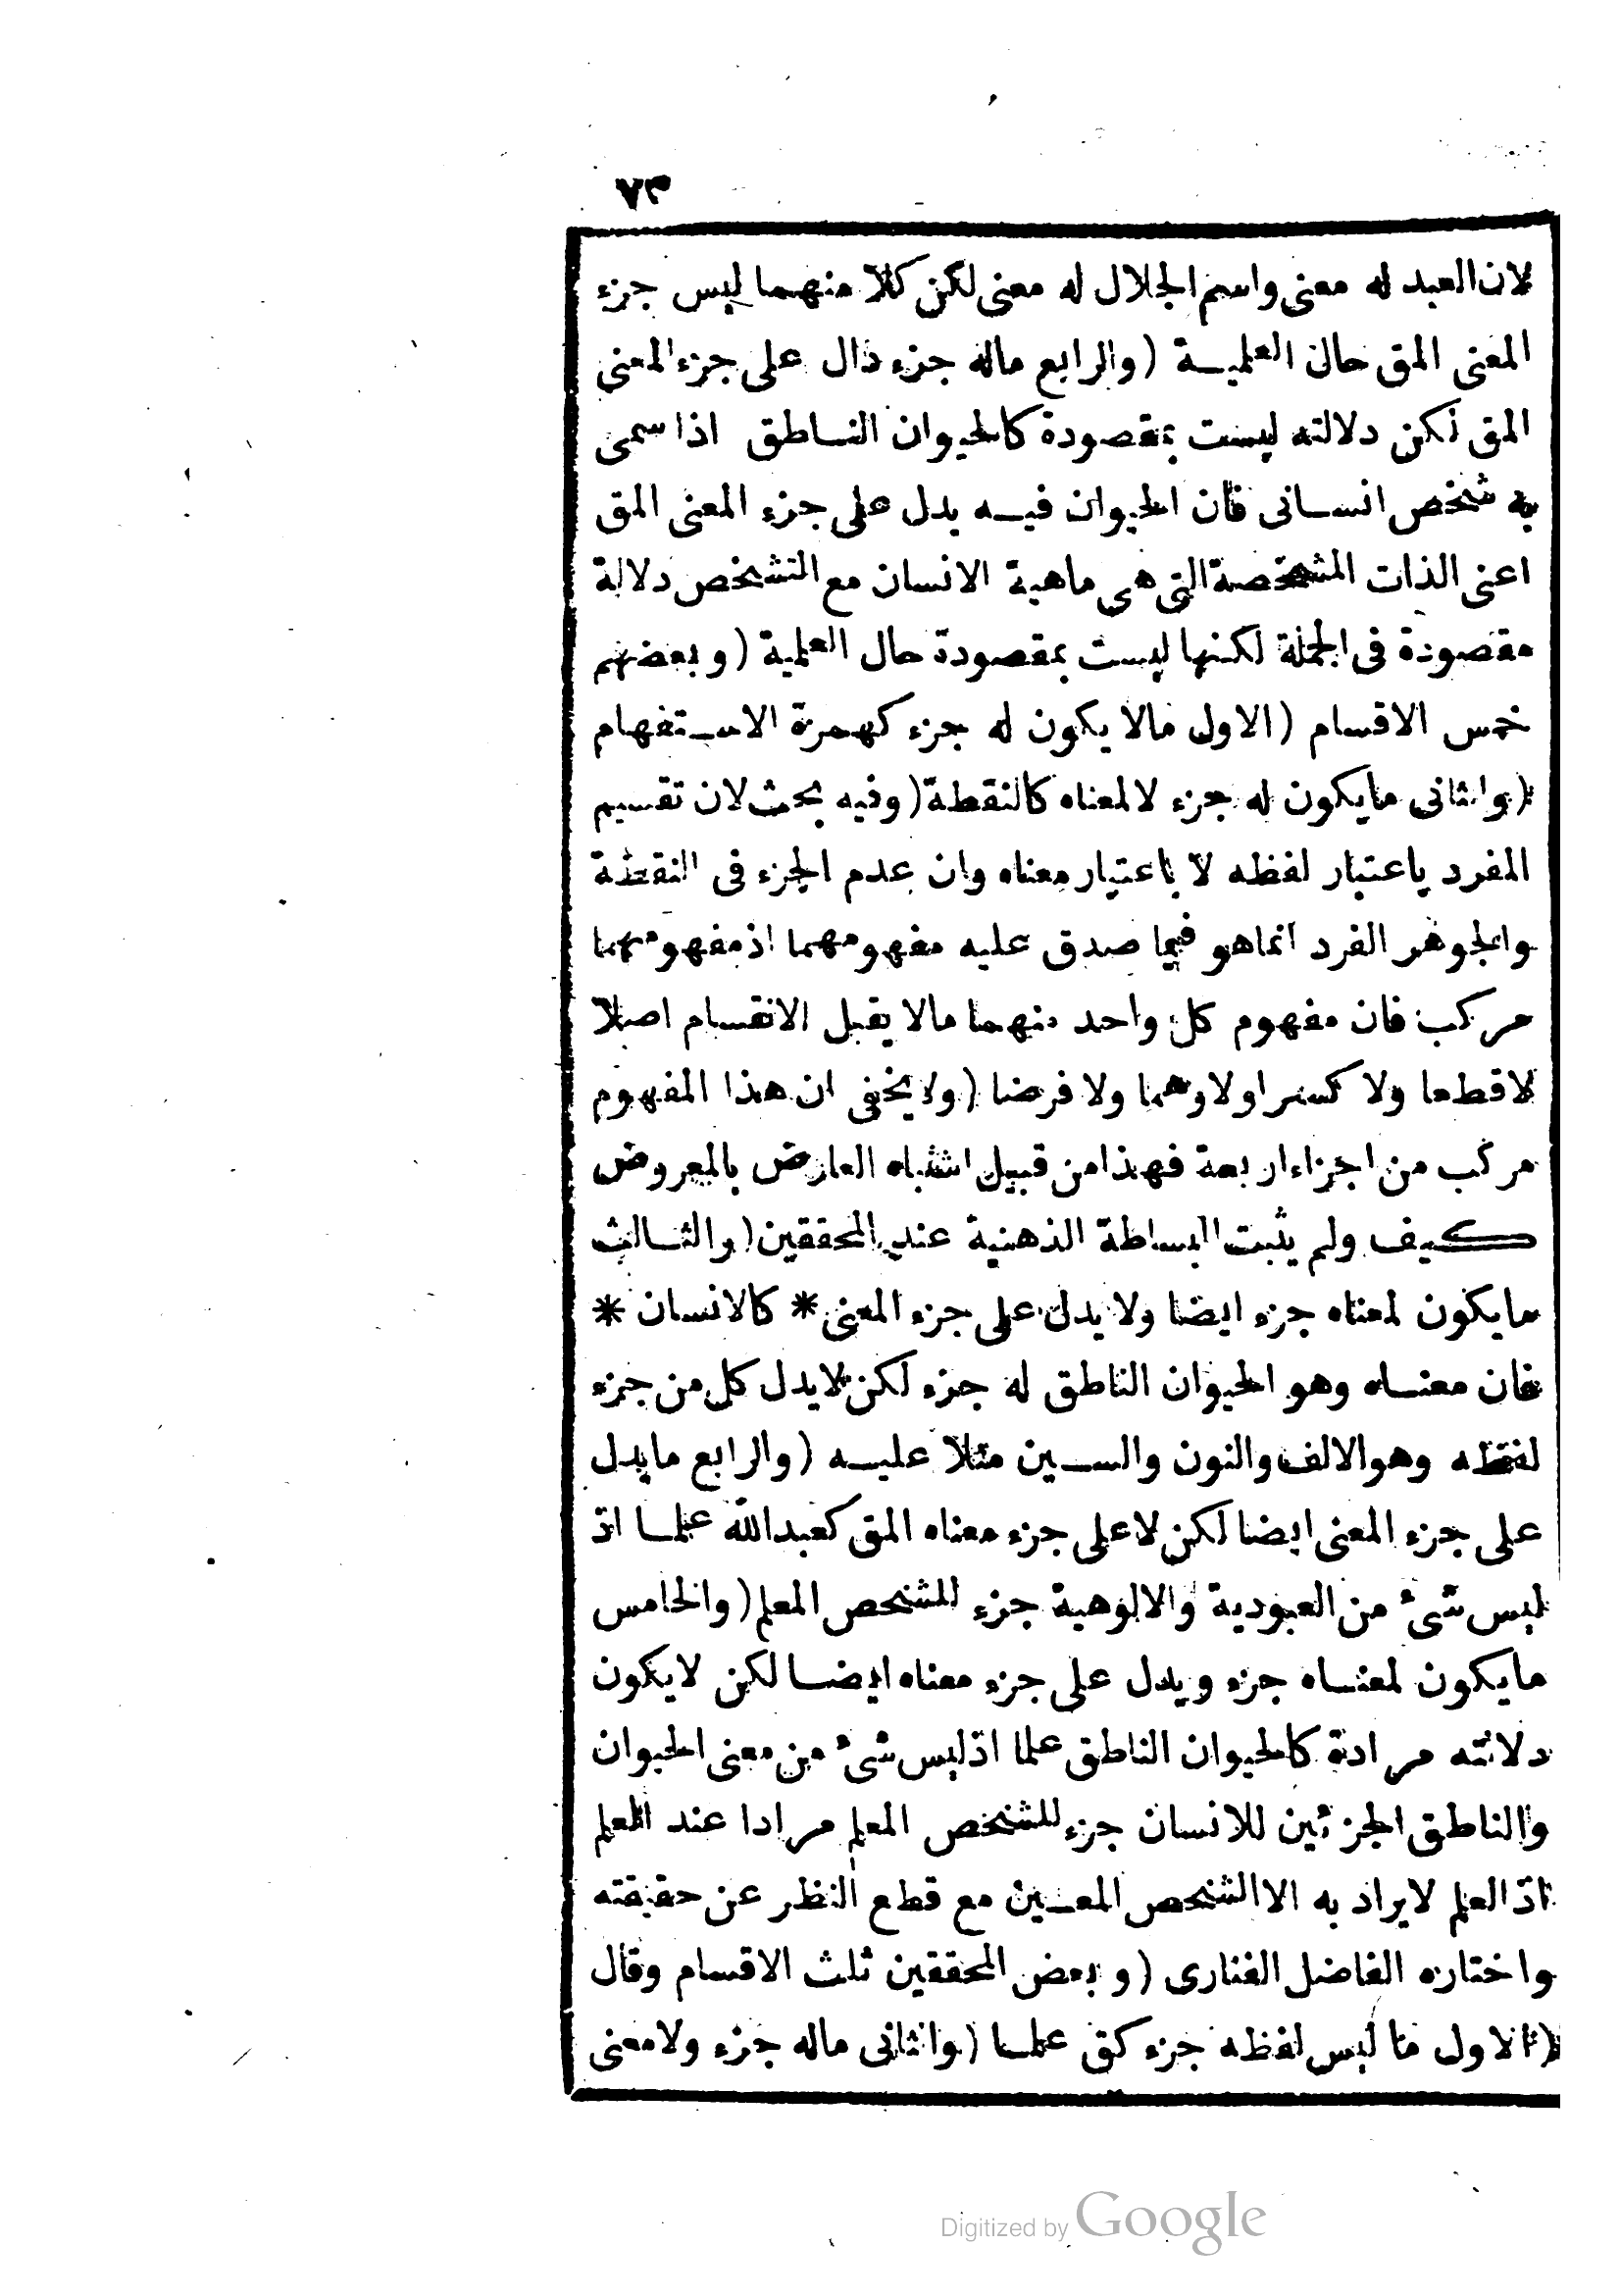 ٧٣
لان العبد له معنى واسم الجلال له معنى لكن كلا منهما ليس جزء
المعنى المق حال العلميـة (والرابع ماله جزء دال على جزء المعنى
المق لكن دلالته ليست بمقصودة كالحيوان النـاطق اذا سمى
به شخص انسـانى فان الحيوان فيـه يدل على جزء المعنى المق
اعنى الذات المشخصة التى هى ماهية الانسان مع التشخص دلالة
مقصودة فى الجملة لكنها ليست بمقصودة حال العلمية (وبعضهم
خمس الاقسام (الاول مالا يكون له جزء كهمزة الاسـتفهام
(والثانى مايكون له جزء لا لمعناه كالنقطة (وفيه بحث لان تقسيم
المفرد باعتبار لفظه لا باعتبار معناه وان عدم الجزء فى النقطة
والجوهر الفرد انماهو فيما صدق عليه مفهومهما اذ مفهومهما
مركب فان مفهوم كل واحد منهما مالا يقبل الانقسام اصلا
لا قطعا ولا كسرا ولا وهما ولا فرضا (ولا يخفى ان هذا المفهوم
مركب من اجزاء اربعة فهذا من قبيل اشتباه العارض بالمعروض
كـيف ولم يثبت البساطة الذهنية عند المحققين (والثـالث
مايكون لمعناه جزء ايضا ولا يدل على جزء المعنى * كالانسان *
فان معنـاه وهو الحيوان الناطق له جزء لكن لا يدل كل من جزء
لفظه وهو الالف والنون والسـين مثلا عليـه (والرابع مايدل
على جزء المعنى ايضا لكن لا على جزء معناه المق كعبدالله علمـا اذ
ليس شىء من العبودية والالوهية جزء للشخص المعلم (والخامس
مايكون لمعنـاه جزء ويدل على جزء معناه ايضـا لكن لا يكون
دلالته مرادة كالحيوان الناطق علما اذ ليس شىء من معنى الحيوان
والناطق الجزئين للانسان جزء للشخص المعلم مرادا عند العلم
اذ العلم لا يراد به الا الشخص المعـين مع قطع النظر عن حقيقته
واختاره الفاضل الفنارى (وبعض المحققين ثلث الاقسام وقال
(الاول ما ليس لفظه جزء كق علمـا (والثانى ماله جزء ولا معنى
Digitized by Google